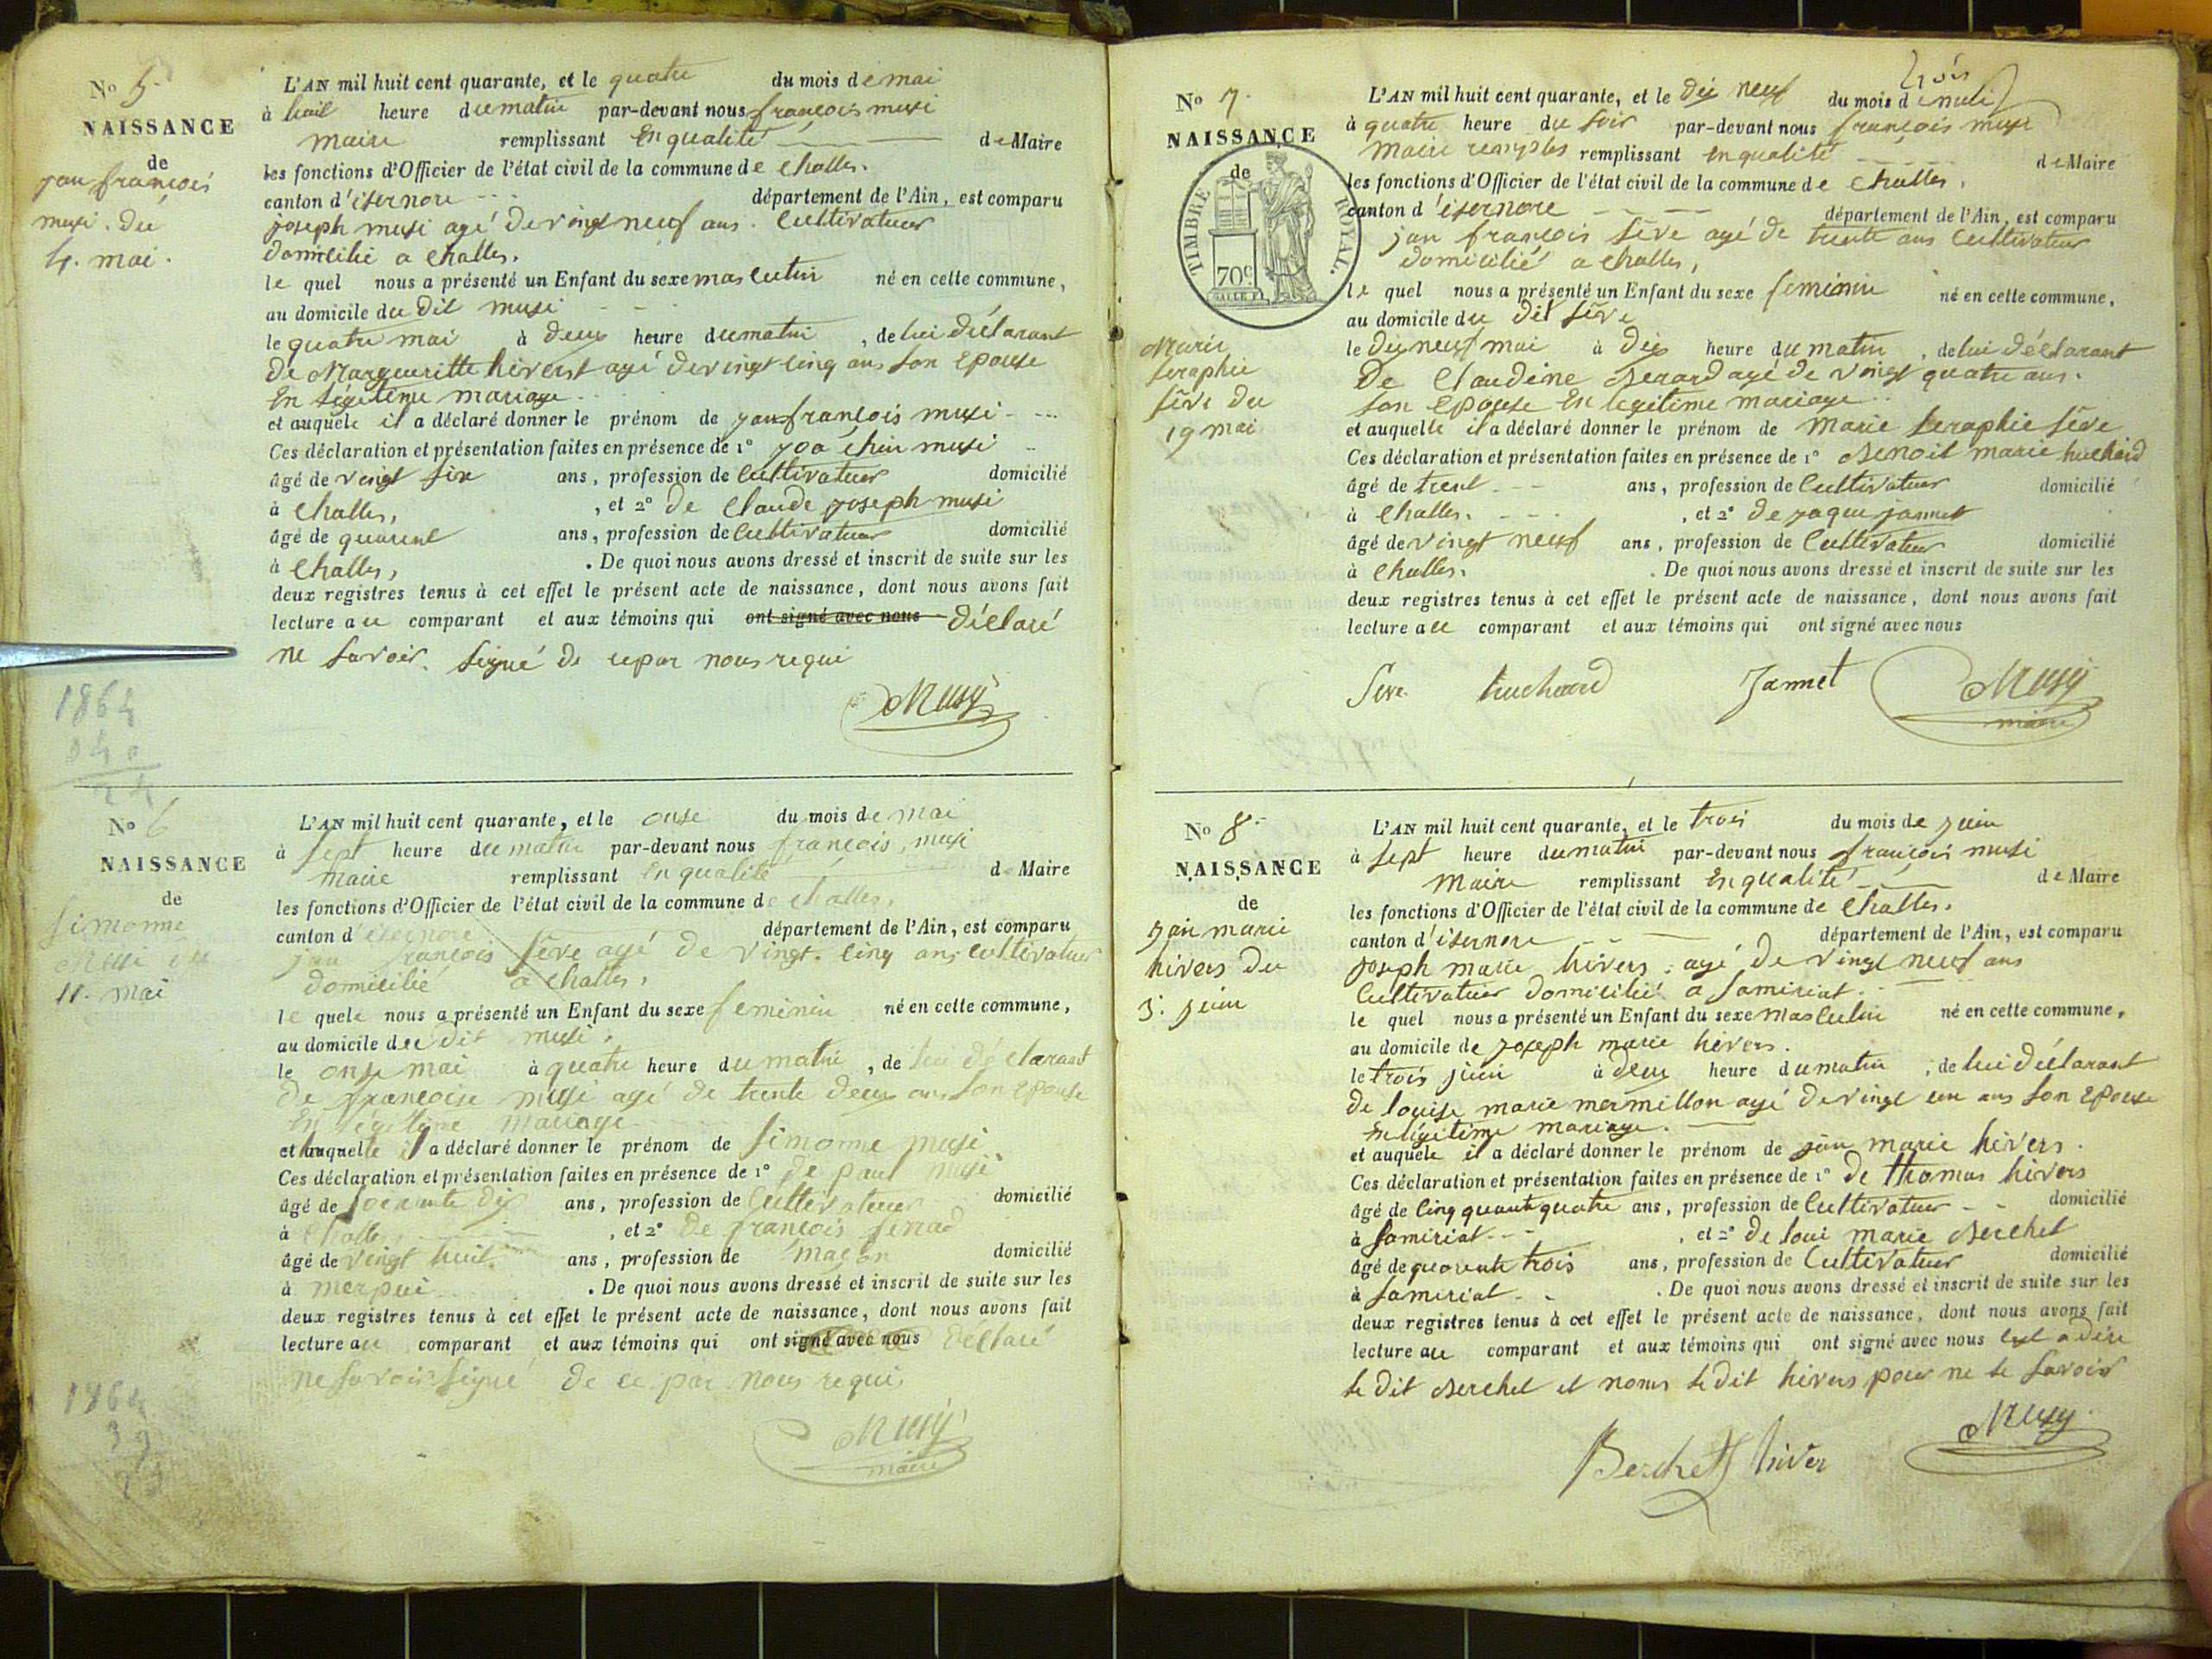 No 5.
NAISSANCE
de
jan françois
musi. du
4. mai.
L'AN mil huit cent quarante, et le quatre du mois de mai
à huit heure du matin par-devant nous françois musi
maire remplissant en qualité de Maire
les fonctions d'Officier de l'état civil de la commune de challes.
canton d'isernore département de l'Ain, est comparu
joseph musi agé de vingt neuf ans. Cultivateur
domicilié a challes.
le quel nous a présenté un Enfant du sexe masculin né en cette commune,
au domicile du dit musi
le quatre mai à deux heure du matin, de lui déclarant
de Margueritte hiverst agé de vingt cinq ans son epouse
en légitime mariage.
et auquel il a déclaré donner le prénom de jan françois musi
Ces déclaration et présentation faites en présence de 1° joachin musi
âgé de vingt six ans, profession de Cultivateur domicilié
à challes, , et 2° de claude joseph musi
âgé de quarent ans, profession de Cultivateur domicilié
à challes, . De quoi nous avons dressé et inscrit de suite sur les
deux registres tenus à cet effet le présent acte de naissance, dont nous avons fait
lecture au comparant et aux témoins qui ont signé avec nous déclaré
ne savoir. signé de ce par nous requi
Musy
1864
840
24
No 6
NAISSANCE
de
simonne
musi du
11. mai
L'AN mil huit cent quarante, et le onse du mois de mai
à sept heure du matin par-devant nous françois, musi
maire remplissant en qualité de Maire
les fonctions d'Officier de l'état civil de la commune de challes.
canton d'isernore département de l'Ain, est comparu
jan françois sève agé de vingt. cinq ans cultivateur
domicilié a challes.
le quele nous a présenté un Enfant du sexe feminin né en cette commune,
au domicile du dit musi.
le onse mai à quatre heure du matin, de lui déclarant
de françoise musi agé de trente deux ans son epouse
en légitime mariage
et auquelle il a déclaré donner le prénom de simonne musi
Ces déclaration et présentation faites en présence de 1° de paul musi
âgé de soixante dix ans, profession de Cultivateur domicilié
à challes , et 2° de françois
âgé de vingt huit. ans, profession de maçon domicilié
à merpui . De quoi nous avons dressé et inscrit de suite sur les
deux registres tenus à cet effet le présent acte de naissance, dont nous avons fait
lecture au comparant et aux témoins qui ont signé avec nous déclaré
ne savoir signé de ce par nous requi.
Musy
maire
1864
39
No 7.
NAISSANCE
de
TIMBRE ROYAL.
70c
Marie
seraphie
sève du
19 mai
L'AN mil huit cent quarante, et le dix neuf du mois de mai
à quatre heure du soir par-devant nous françois musi
maire remplissant en qualité de Maire
les fonctions d'Officier de l'état civil de la commune de challes,
canton d'isernore département de l'Ain, est comparu
jan françois sève agé de trente ans cultivateur
domicilié a challes,
le quel nous a présenté un Enfant du sexe feminin né en cette commune,
au domicile du dit sève
le dix neuf mai à dix heure du matin, de lui déclarant
de claudine Berard agé de vingt quatre ans.
son epouse en legitime mariage.
et auquelle il a déclaré donner le prénom de marie seraphie sève
Ces déclaration et présentation faites en présence de 1° Benoit marie huchard
âgé de trent ans, profession de Cultivateur domicilié
à challes. , et 2° de jaque jannet
âgé de vingt neuf ans, profession de Cultivateur domicilié
à challes. . De quoi nous avons dressé et inscrit de suite sur les
deux registres tenus à cet effet le présent acte de naissance, dont nous avons fait
lecture au comparant et aux témoins qui ont signé avec nous
Seve huchard Jannet Musy
maire
No 8.
NAISSANCE
de
jan marie
hivers du
3. juin
L'AN mil huit cent quarante, et le trois du mois de juin
à sept heure du matin par-devant nous françois musi
maire remplissant en qualité de Maire
les fonctions d'Officier de l'état civil de la commune de challes.
canton d'isernore département de l'Ain, est comparu
joseph marie hivers. agé de vingt neuf ans
Cultivateur domicilié a samiriat.
le quel nous a présenté un Enfant du sexe masculin né en cette commune,
au domicile de joseph marie hivers.
le trois juin à deux heure du matin, de lui déclarant
de louise marie mermillon agé de vingt un ans son epouse
en légitime mariage.
et auquele il a déclaré donner le prénom de jan marie hivers.
Ces déclaration et présentation faites en présence de 1° de thomas hivers
âgé de cinq quante quatre ans, profession de Cultivateur domicilié
à samiriat , et 2° de loui marie Berchet
âgé de quarente trois ans, profession de Cultivateur domicilié
à samiriat . De quoi nous avons dressé et inscrit de suite sur les
deux registres tenus à cet effet le présent acte de naissance, dont nous avons fait
lecture au comparant et aux témoins qui ont signé avec nous
le dit Berchet et le dit hivers pour ne le savoir
Berchet hiver Musy